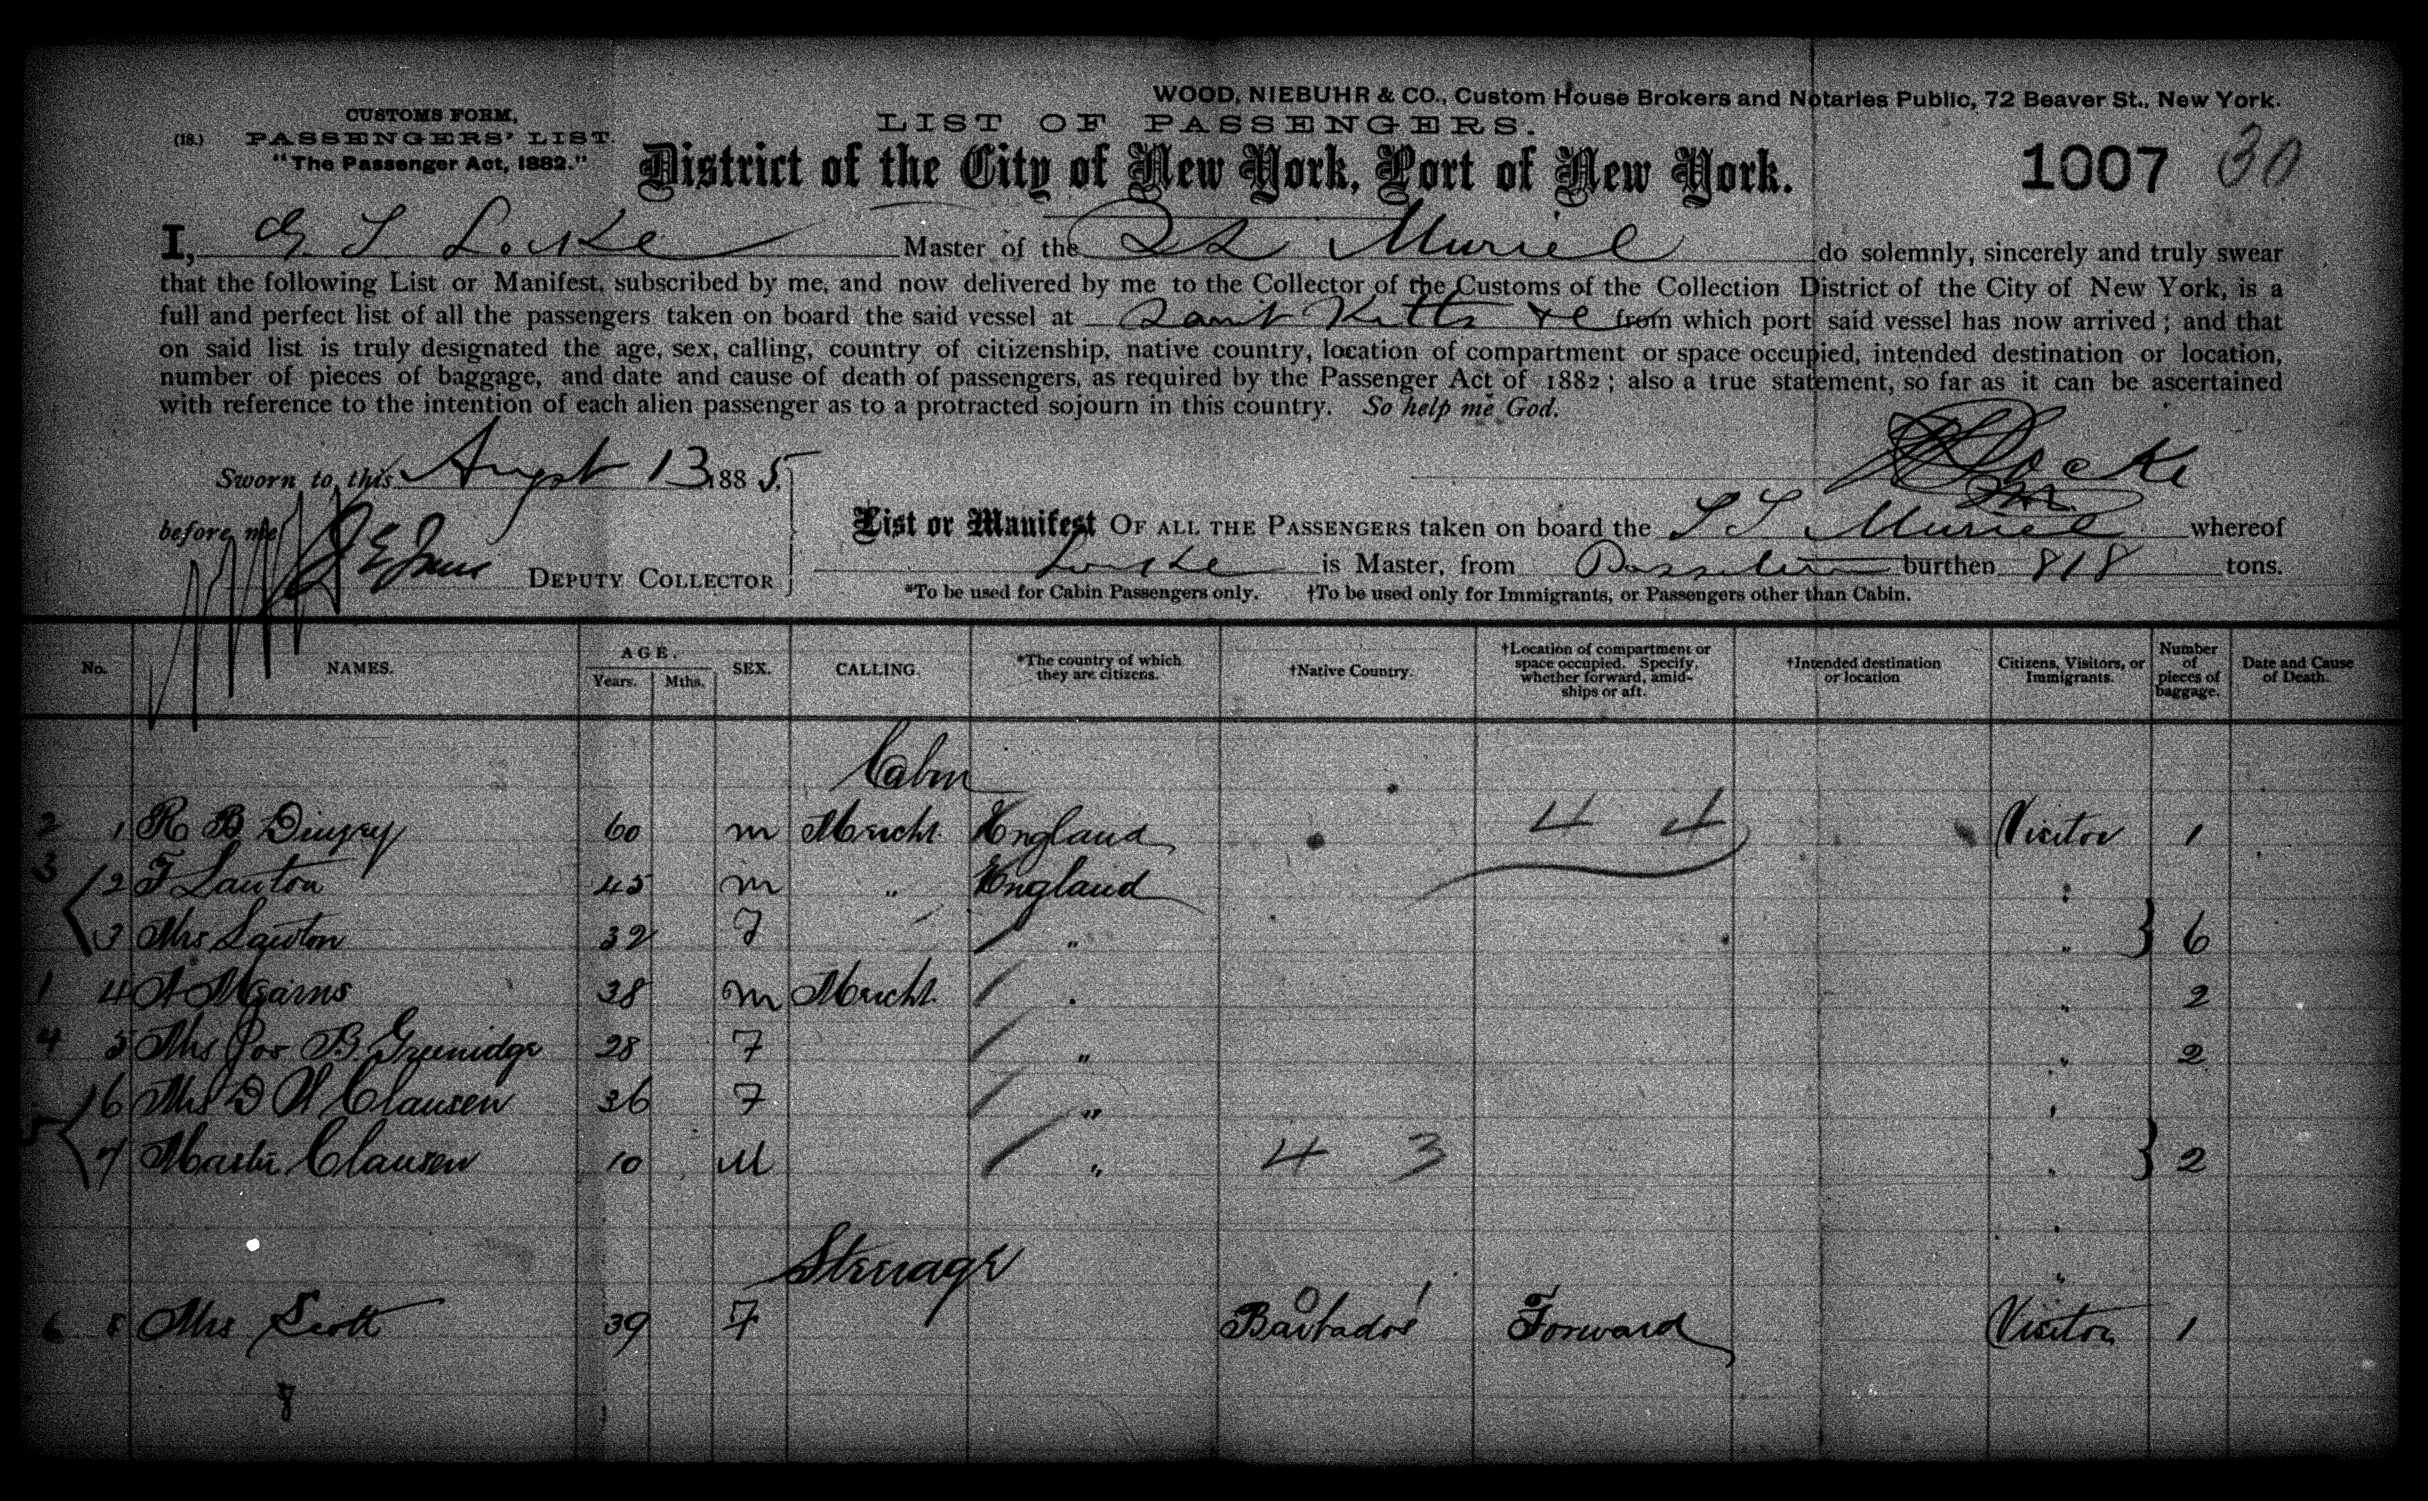 WOOD, NIEBUHR & CO., Custom House Brokers and Notaries Public, 72 Beaver St., New York.
CUSTOMS FORM,
(18.) PASSENGERS' LIST.
"The Passenger Act, 1882."
LIST OF PASSENGERS.
District of the City of New York, Port of New York.
1007 30
I, G S Locke Master of the SS Muriel do solemnly, sincerely and truly swear
that the following List or Manifest, subscribed by me, and now delivered by me to the Collector of the Customs of the Collection District of the City of New York, is a
full and perfect list of all the passengers taken on board the said vessel at Saint Kitts &c from which port said vessel has now arrived; and that
on said list is truly designated the age, sex, calling, country of citizenship, native country, location of compartment or space occupied, intended destination or location,
number of pieces of baggage, and date and cause of death of passengers, as required by the Passenger Act of 1882; also a true statement, so far as it can be ascertained
with reference to the intention of each alien passenger as to a protracted sojourn in this country. So help me God.
Sworn to this Augst 13 1885. Locke
before me
DEPUTY COLLECTOR
List or Manifest OF ALL THE PASSENGERS taken on board the SS Muriel whereof
Locke is Master, from burthen 818 tons.
*To be used for Cabin Passengers only. †To be used only for Immigrants, or Passengers other than Cabin.
No. NAMES. AGE. Years. Mths. SEX. CALLING. *The country of which they are citizens. †Native Country. †Location of compartment or space occupied. Specify, whether forward, amidships or aft. †Intended destination or location Citizens, Visitors, or Immigrants. Number of pieces of baggage. Date and Cause of Death.
Cabin
2 1 R B Dingey 60 m Mercht. England 4 4 Visitor 1
3 2 F Lawton 45 m " England "
3 Mrs Lawton 32 F " " } 6
1 4 A Mearns 38 m Mercht. " " 2
4 5 Mrs Jos B. Greenidge 28 F " " 2
5 6 Mrs D A Clausen 36 F " "
7 Master Clausen 10 M " 4 3 " } 2
Steerage
6 8 Mrs Scott 39 F Barbados Forward Visitor 1
8